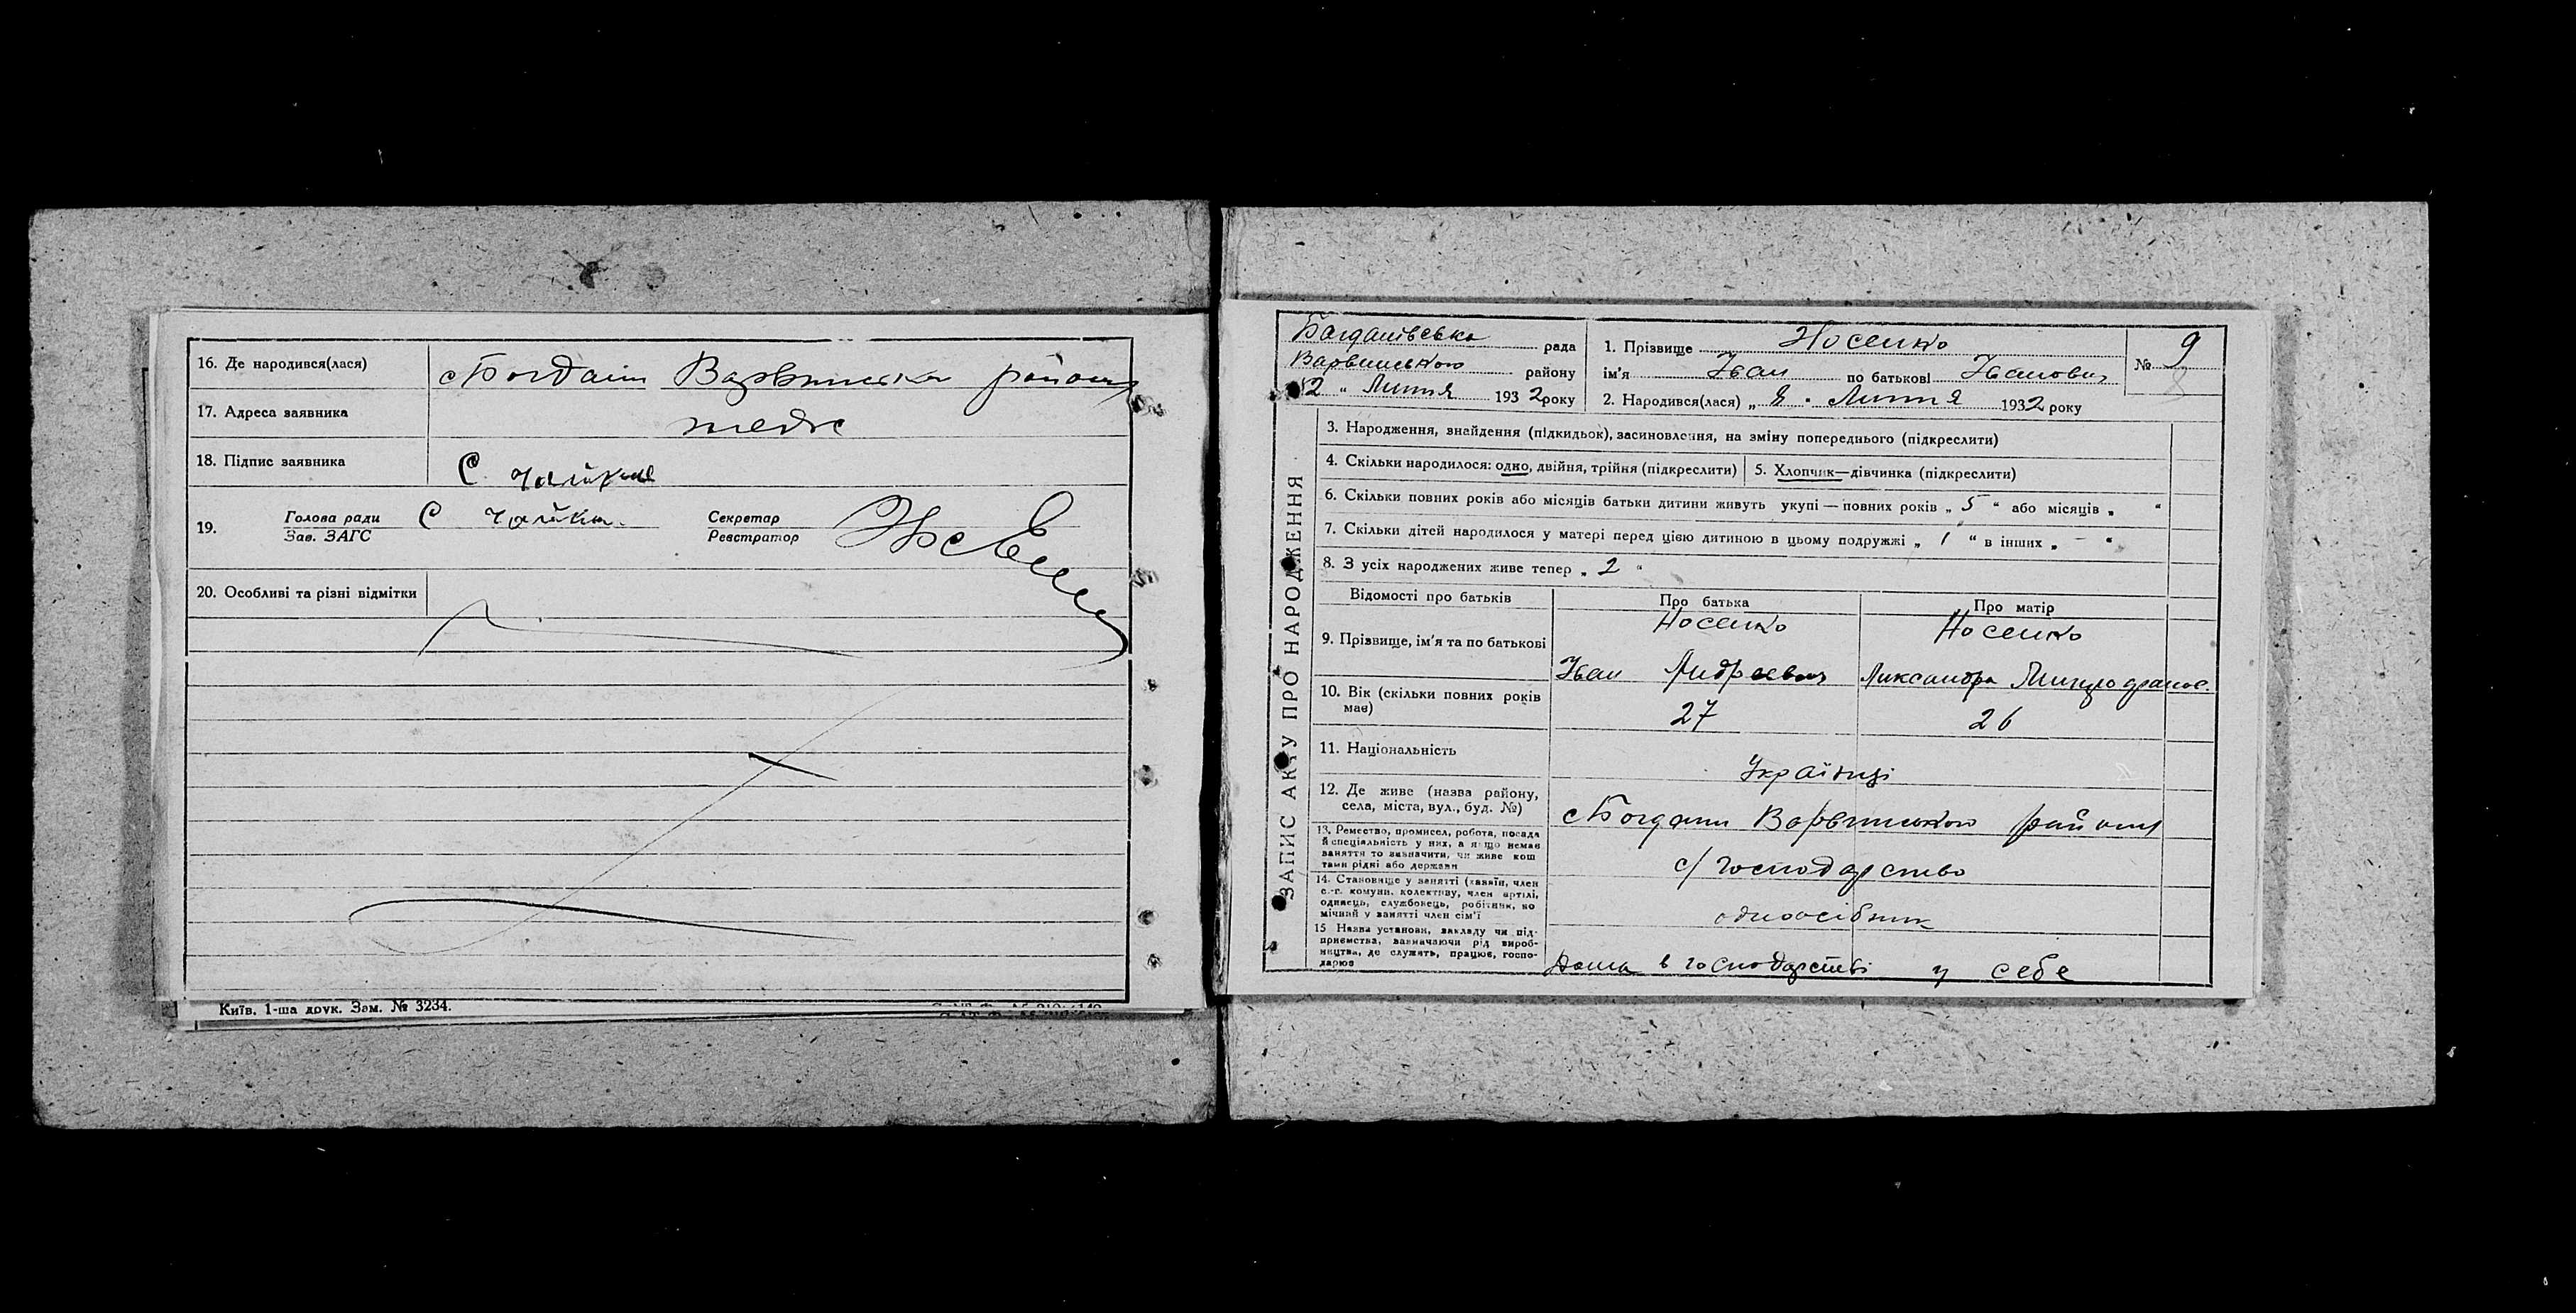 16. Де народився(лася)
с Богдани Варвинська району
17. Адреса заявника
теж
18. Підпис заявника
С. Чайка
19.
Голова ради
Зав. ЗАГС
С Чайка.
Секретар
Реєстратор
20. Особливі та різні відмітки
Київ. 1-ша друк. Зам. № 3234.
Богданівська рада
Варвинського району
12 „ Липня 1932 року
1. Прізвище Носенко
ім'я Іван по батькові Іванович
№ 9
2. Народився(лася) „ 8 „ Липня 1932 року
ЗАПИС АКТУ ПРО НАРОДЖЕННЯ
3. Народження, знайдення (підкидьок), засиновлення, на зміну попереднього (підкреслити)
4. Скільки народилося: одно, двійня, трійня (підкреслити)
5. Хлопчик—дівчинка (підкреслити)
6. Скільки повних років або місяців батьки дитини живуть укупі — повних років „ 5 “ або місяців „ “
7. Скільки дітей народилося у матері перед цією дитиною в цьому подружжі „ 1 “ в інших „ – “
8. З усіх народжених живе тепер „ 2 “
Відомості про батьків
Про батька
Про матір
9. Прізвище, ім'я та по батькові
Носенко
Іван Андреєвич
Носенко
Александра
10. Вік (скільки повних років має)
27
26
11. Національність
Українці
12. Де живе (назва району,
села, міста, вул., буд. №)
с Богдани Варвинського району
13. Ремество, промисел, робота, посада
й спеціяльність у них, а якщо немає
заняття то зазначити, чи живе кош
тами рідні або держави
с/господарство
14. Становище у занятті (хазяїн, член
с.-г. комуни, колективу, член артілі,
одинець, службовець, робітник, по
мічний у занятті член сім'ї
одноосібник
15 Назва установи, закладу чи під-
приємства, зазначаючи рід вироб-
ництва, де служить, працює, госпо-
дарює
Дома в господарстві у себе